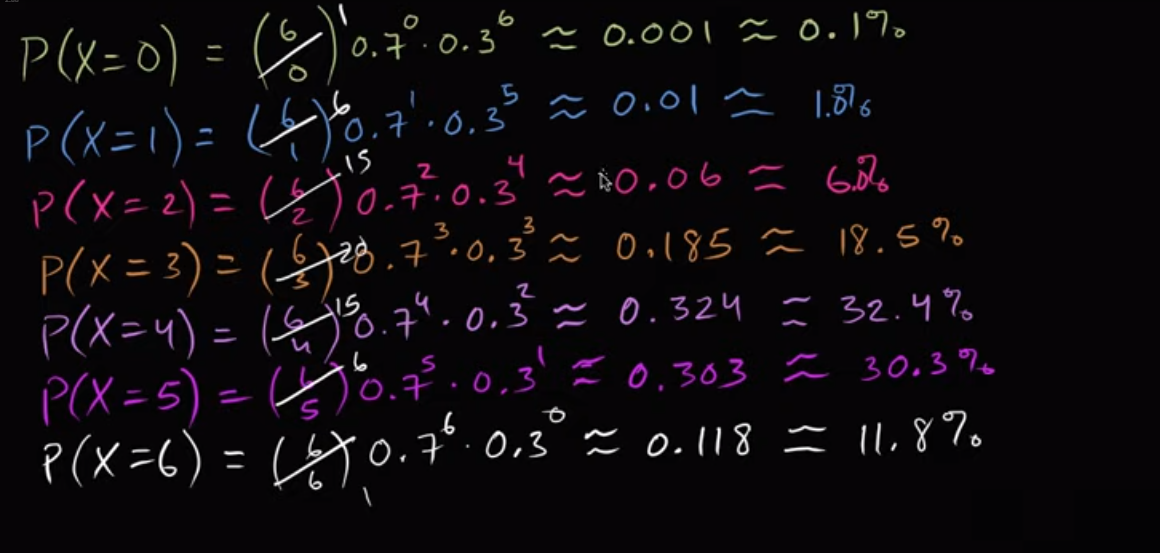 P(X=0) = (6/0) 1 0.7^0 · 0.3^6 ≈ 0.001 ≈ 0.1%
P(X=1) = (6/1) 6 0.7^1 · 0.3^5 ≈ 0.01 ≈ 1.0%
P(X=2) = (6/2) 15 0.7^2 · 0.3^4 ≈ 0.06 ≈ 6.0%
P(X=3) = (6/3) 20 0.7^3 · 0.3^3 ≈ 0.185 ≈ 18.5%
P(X=4) = (6/4) 15 0.7^4 · 0.3^2 ≈ 0.324 ≈ 32.4%
P(X=5) = (6/5) 6 0.7^5 · 0.3^1 ≈ 0.303 ≈ 30.3%
P(X=6) = (6/6) 1 0.7^6 · 0.3^0 ≈ 0.118 ≈ 11.8%